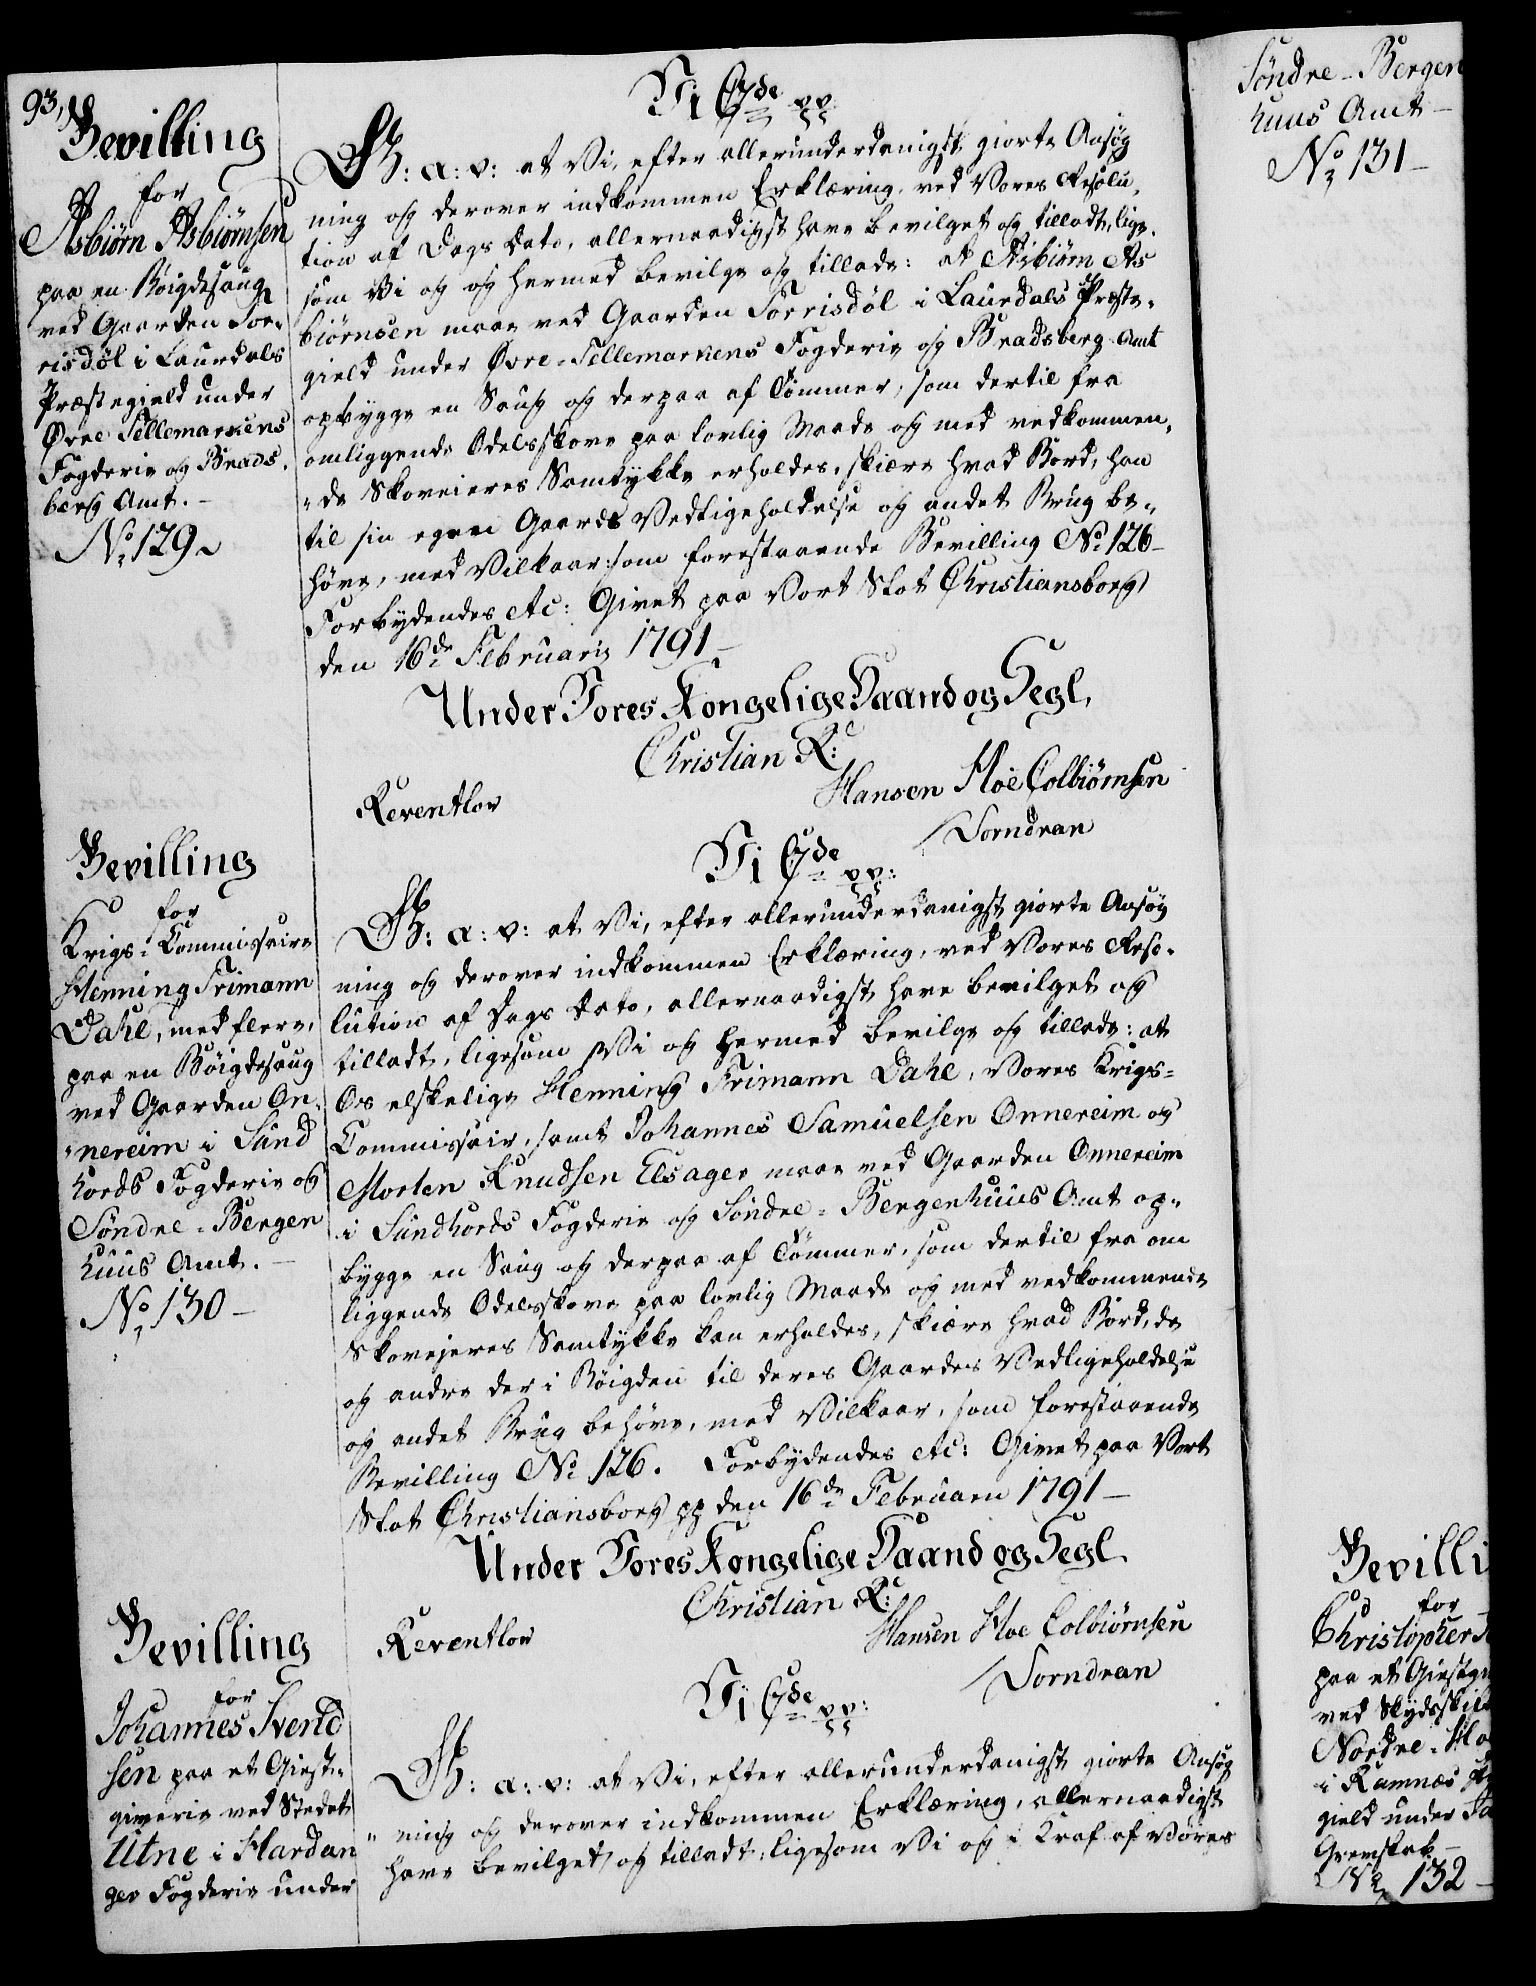 93,
Bevilling
for
Asbiörn Asbiörnsen
paa en Böigdesaug
ved Gaarden Tor-
risdöl i Laurdals
Præstegield under
Øvre Tellemarkens
Fogderie og Brads-
berg Amt.-
No 129
Vi C 7de pp
G: a: v: at Vi, efter allerunderdanigst giorte Ansøg
ning og derover indkommen Erklæring, ved Vores Resolu-
tion af Dags Dato, allernaadigst have bevilget og tilladt, lige-
som Vi og og hermed bevilge og tillade: at Asbiörn As
biörnsen maae ved Gaarden Torrisdöl i Laurdals Præste-
gield under Øvre-Tellemarkens Fogderie og Bradsberg Amt
opbygge en Saug og derpaa af Tömmer, som dertil fra
omliggende Odelsskove paa lovlig Maade og med vedkommen-
-de Skoveieres Samtykke erholdes, skiære hvad Bord, han
til sin egen Gaards Vedligeholdelse og andet Brug be-
höve, med Vilkaar som forestaaende Bevilling No 126-
Forbydendes etc: Givet paa Vort Slot Christiansborg
den 16de Februarii 1791-
Under Vores Kongelige Haand og Segl.
Christian R:
Reventlov
Hansen Hoe Colbiörnsen
/Dorndran
Bevilling
for
Krigs-Commissaire
Henning Frimann
Dahl, med flere,
paa en Böigdesaug
ved Gaarden On-
-nereim i Sund
hords Fogderie og
Söndre-Bergen
huus Amt.-
No 130-
Vi C 7de pp:
G: a: v: at Vi, efter allerunderdanigst giorte Ansøg
ning og derover indkommen Erklæring, ved Vores Reso-
lution af Dags Dato, allernaadigst have bevilget og
tilladt, ligesom Vi og hermed bevilge og tillade: at
Os elskelige Henning Frimann Dahl, Vores Krigs-
Commissair, samt Johannes Samuelsen Onnereim og
Morten Knudsen Elsager maae ved Gaarden Onnereim
i Sundhords Fogderie og Söndre-Bergenhuus Amt op-
bygge en Saug og derpaa af Tömmer, som dertil fra om
liggende Odelsskove paa lovlig Maade og med vedkommende
Skovejeres Samtykke kan erholdes, skiære hvad Bord, de
og andre der i Böigden til deres Gaardes Vedligeholdelse
og andet Brug behöve, med Vilkaar, som forestaaende
Bevilling No 126. Forbydendes etc: Givet paa Vort
Slot Christiansborg pp den 16de Februarii 1791-
Under Vores Kongelige Haand og Segl.
Christian R:
Reventlov
Hansen Hoe Colbiörnsen
/Dorndran
Bevilling
for
Johannes Svend
sen paa et Giest-
giverie ved Stedet
Utne i Hardan
ger Fogderie under
Vi C 7de pp:
G: a: v: at Vi, efter allerunderdanigst giorte Ansøg
-ning og derover indkommen Erklæring, allernaadigst
have bevilget og tilladt, ligesom Vi og i Kraf af Vores
Söndre-Bergen
huus Amt-
No 131-
Bevilli
for
Christopher
paa et Giestgi
ved Skydsskif
Nordre-Ho
i Ramnæs
gield under
Grevskab-
No 132-